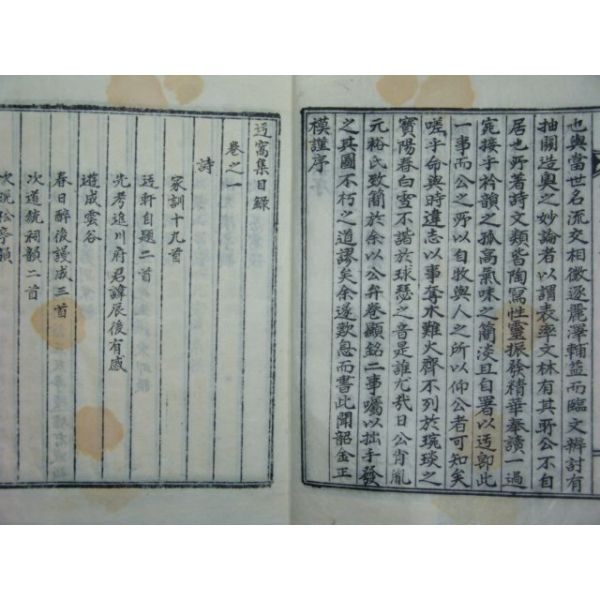 也與當世名流交相徵逐麗澤輔益而臨文辨討有
抽關造奧之妙論者以謂表率文林有其所公不自
居也所著詩文類皆陶寫性靈振發精華奉讀一過
宛接乎衿韻之孤高氣味之簡淡且自署以迃卽此
一事而公之所以自牧與人之所以仰公者可知矣
嗟乎命與時違志以事奪水難火齊不列於琬琰之
寶陽春白雪不諧於球瑟之音是誰尤哉日公胄胤
元裕氏致簡於余以公弁卷顯銘二事囑以拙手發
之其圖不朽之道謬矣余遂歎息而書此聞韶金正
模謹序
迃窩集目錄
卷之一
詩
家訓十九首
迃軒自題二首
先考進川府君諱辰後有感
遊成雲谷
春日醉後謾成三首
次道號祠韻二首
次晩松亭韻